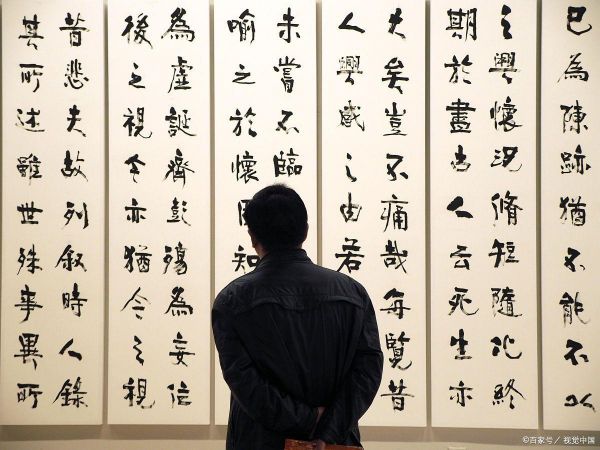 已為陳跡猶不能不以
之興懷況脩短隨化終
期於盡古人云死生亦
大矣豈不痛哉每覽昔
人興感之由若
未嘗不臨
喻之於懷固知
為虛誕齊彭殤為妄
後之視今亦猶今之視
昔悲夫故列叙時人錄
其所述雖世殊事異所
©百家号／视觉中国